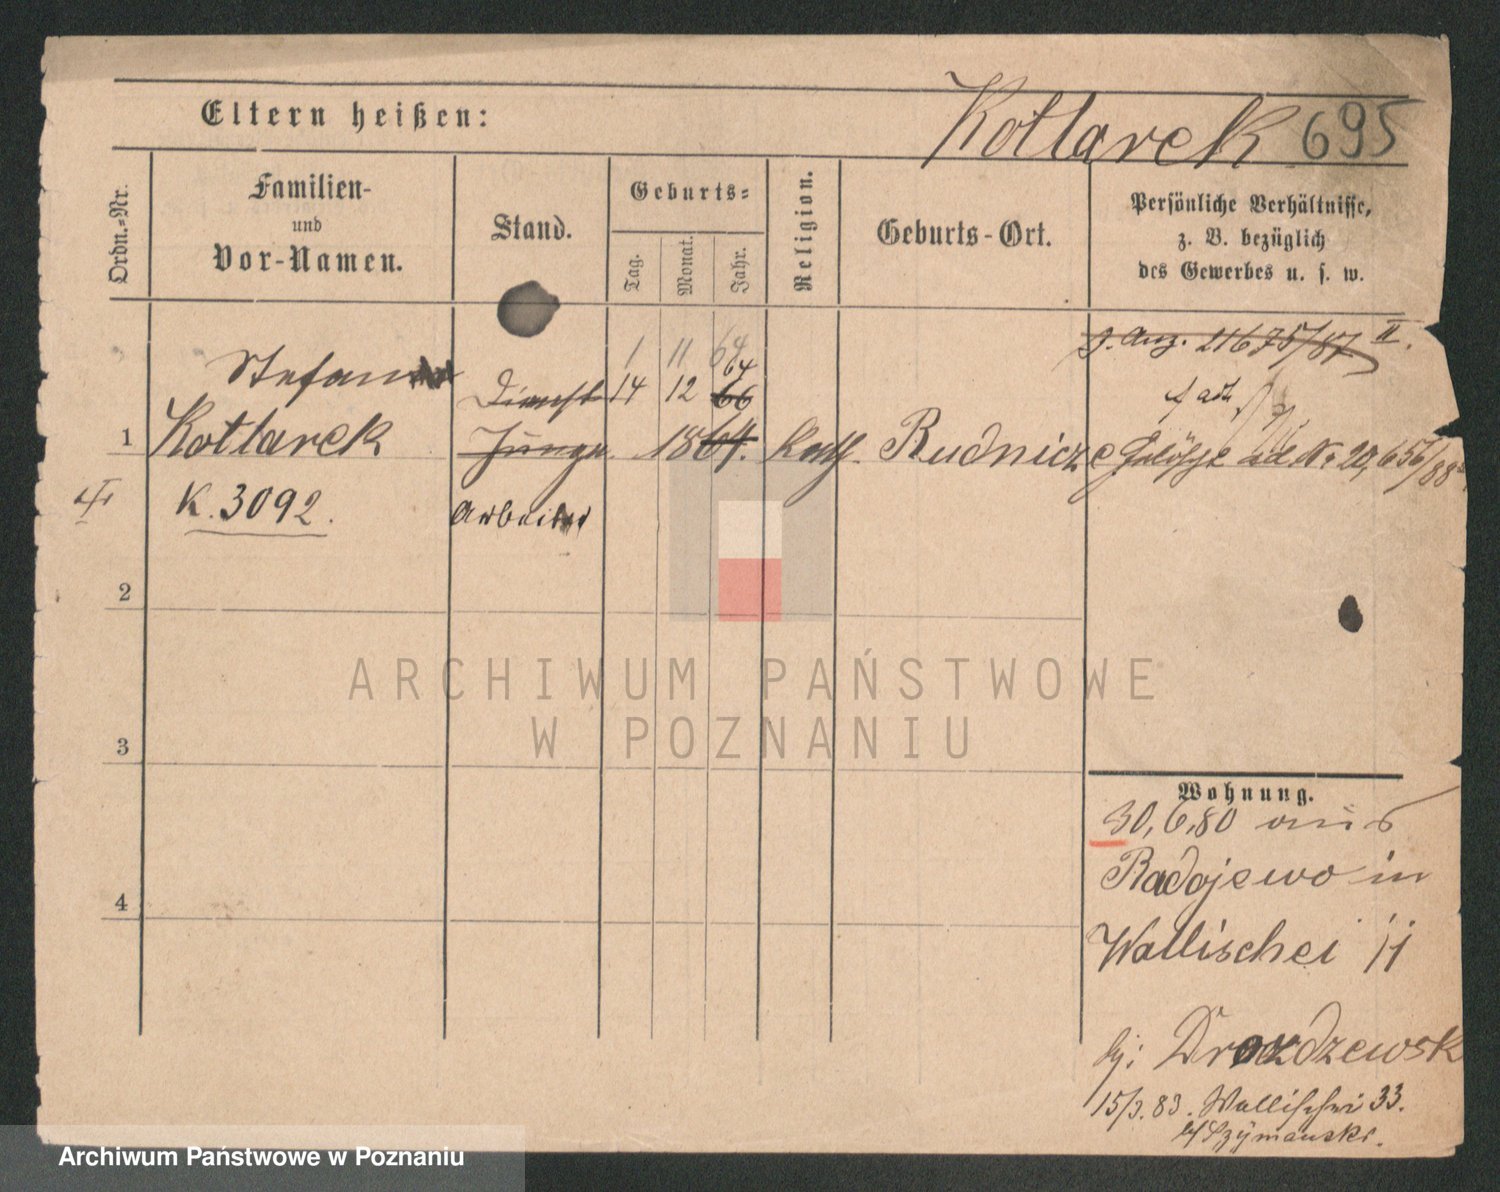 Eltern heißen:
Kotlarek 695
Ordn.-Nr.
Familien-
und
Vor-Namen.
Stand.
Geburts-
Tag.
Monat.
Jahr.
Religion.
Geburts-Ort.
Persönliche Verhältnisse,
z. B. bezüglich
des Gewerbes u. s. w.
21675/87 II.
1 11 64
64
Stefan
Dienst 14 12 66
1 Kotlarek Junge 1864. kath. Rudnicze No 20,656/88
K. 3092. Arbeiter
2
3
4
Wohnung.
30,6,80 aus
Radojewo in
Wallischei 11
bei Drozdzewsk
15/3.83. Wallischei 33.
b/Szymanski.
ARCHIWUM PAŃSTWOWE
W POZNANIU
Archiwum Państwowe w Poznaniu